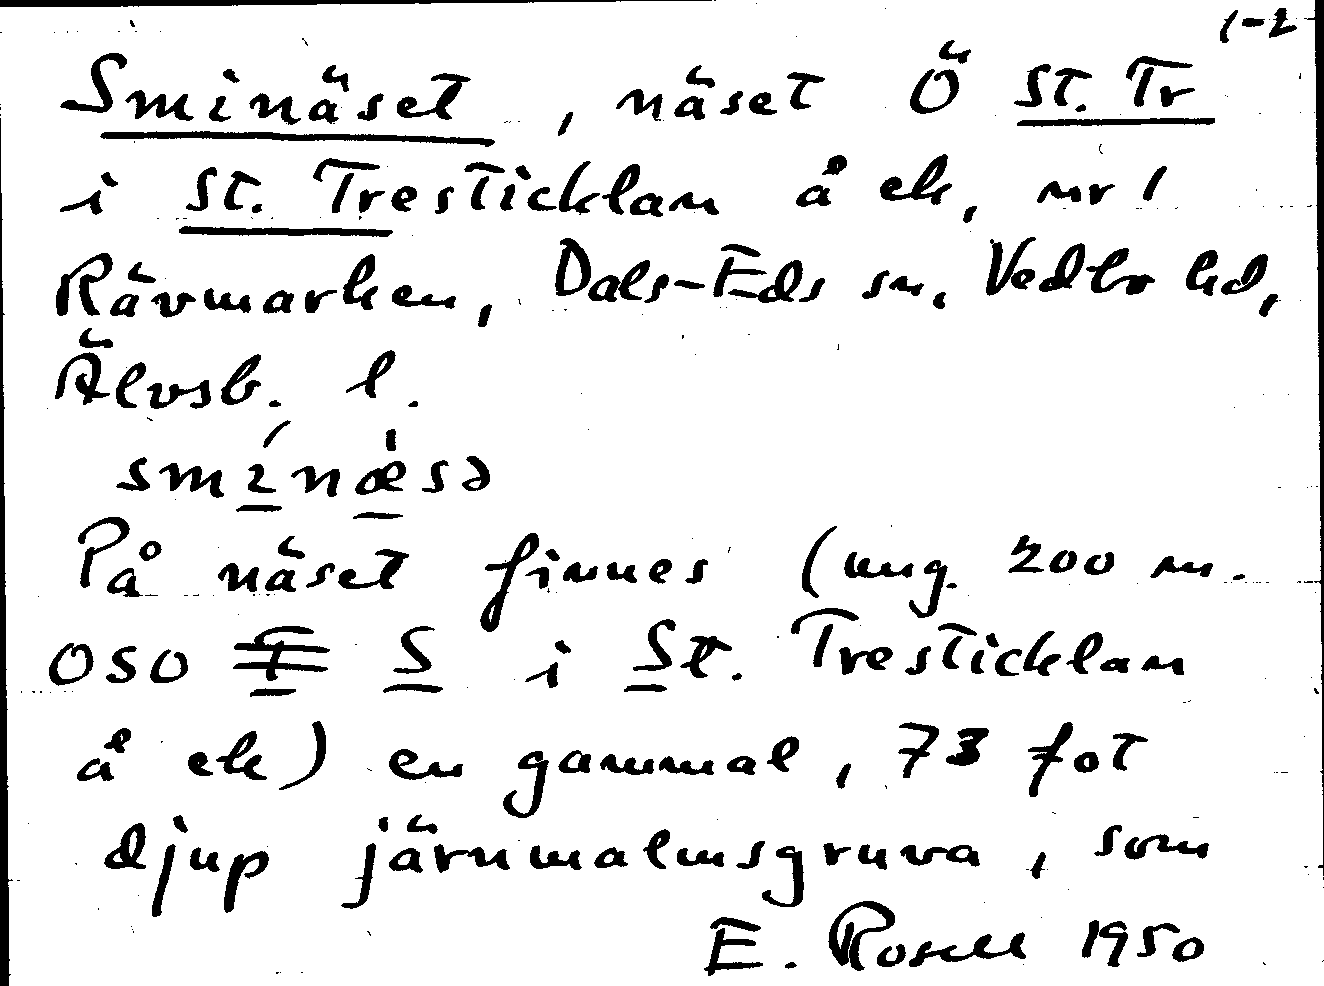 1-2
Sminäset, näset Ö St. Tr
i St. Tresticklan å ek, nr 1
Rävmarken, Dals-Eds sn. Vedbo hd,
Älvsb. l.
smínæ̍sə
På näset finnes (ung. 200 m.
OSO S i St. Tresticklan
å ek) en gammal, 73 fot
djup järnmalmsgruva, som
E. Rosell 1950